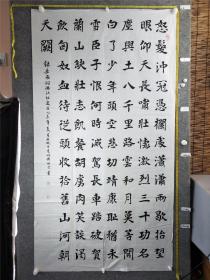 怒髮沖冠憑欄處瀟瀟雨歇抬望
眼仰天長嘯壯懷激烈三十功名
塵與土八千里路雲和月莫等閒
白了少年頭空悲切靖康恥猶未
雪臣子恨何時滅駕長車踏破賀
蘭山缺壯志飢餐胡虜肉笑談渴
飲匈奴血待從頭收拾舊山河朝
天闕